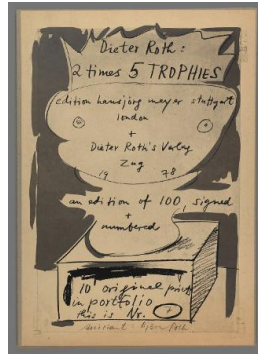 Dieter Roth:
2 times 5 TROPHIES
edition hansjörg mayer stuttgart
london
+
Dieter Roth's Verlag
Zug
19 78
an edition of 100, signed
+
numbered
10 original prints
in portfolio
this is Nr.
assistant: Björn Roth